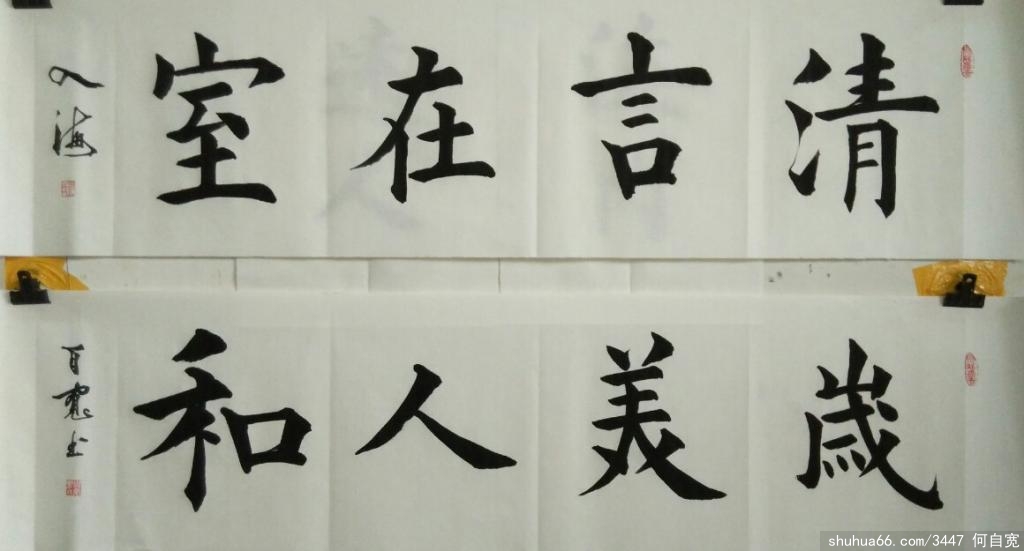 清言在室
歲美人和
自寬书
shuhua66.com/3447 何自宽